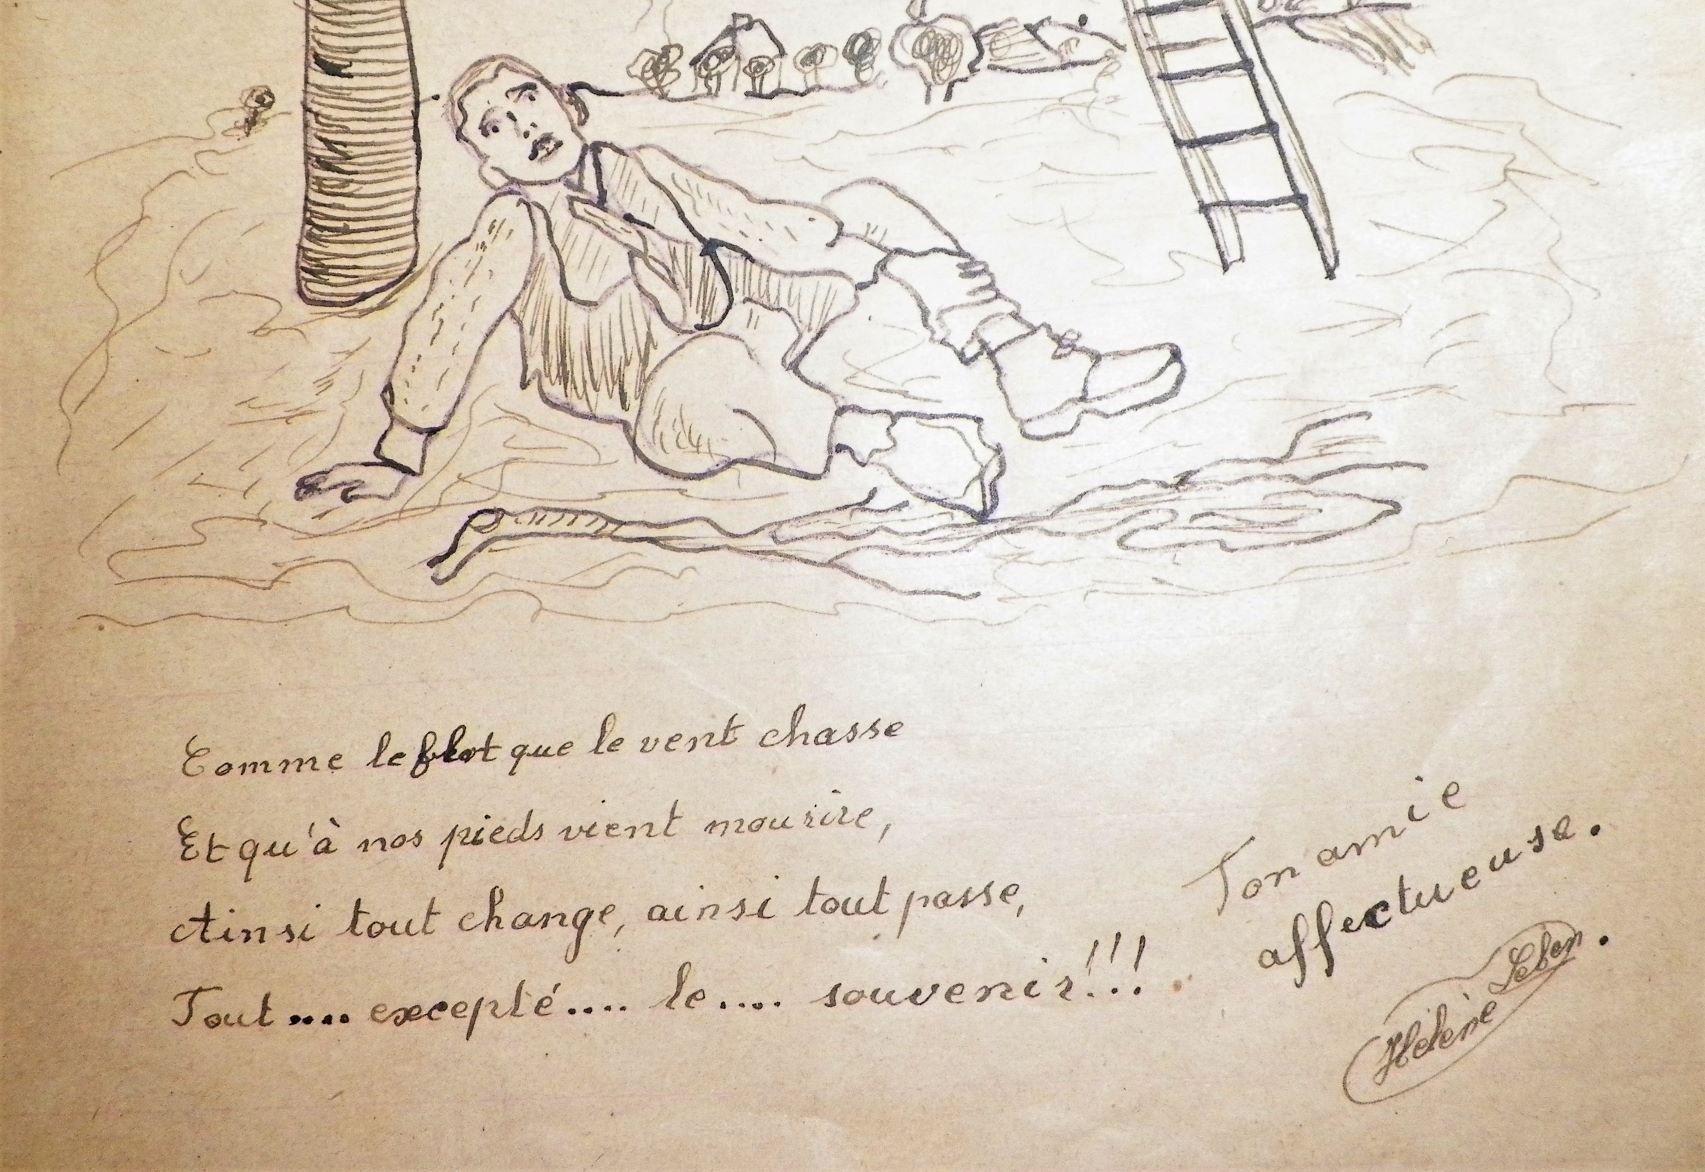 Comme le flot que le vent chasse
Et qu'à nos pieds vient mourire,
Ainsi tout change, ainsi tout passe,
Tout.... excepté.... le.... souvenir!!!
Ton amie
affectueuse.
Hélène Leben.